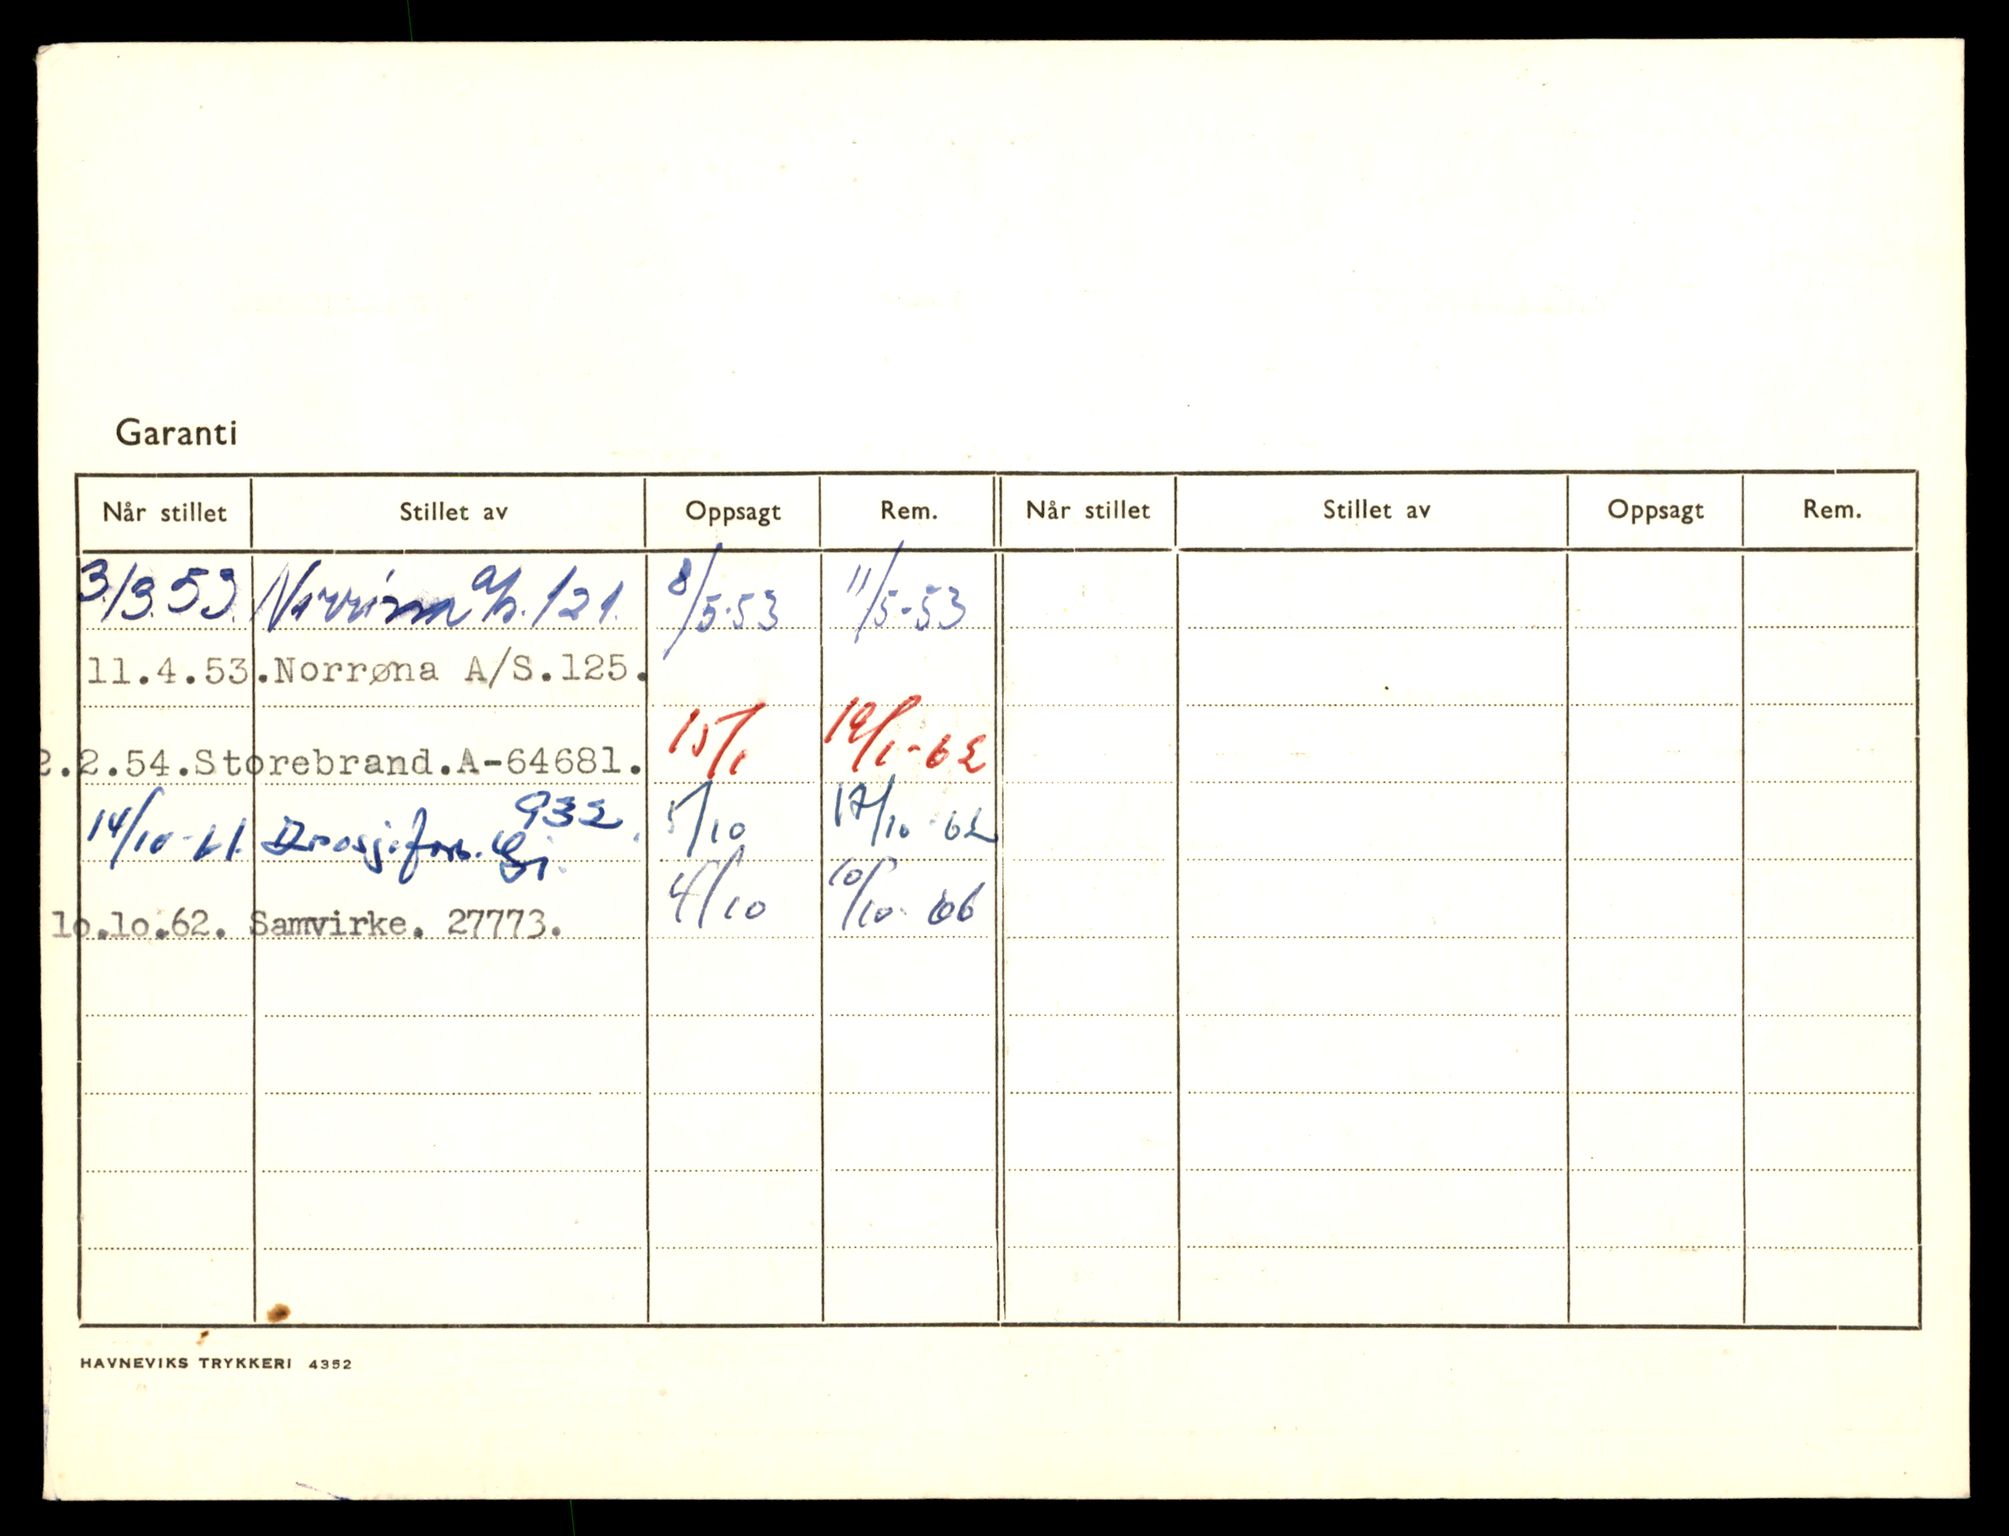 Garanti
Når stillet Stillet av Oppsagt Rem. Når stillet Stillet av Oppsagt Rem.
3/3.53. Norrøna a/s. 121. 8/5-53 11/5-53
11.4.53.Norrøna A/S.125.
2.2.54.Storebrand.A-64681. 15/1 19/1-62
14/10-61. Drosjefors. 932. 5/10 17/10-62
10.10.62. Samvirke. 27773. 4/10 10/10-66
HAVNEVIKS TRYKKERI 4352